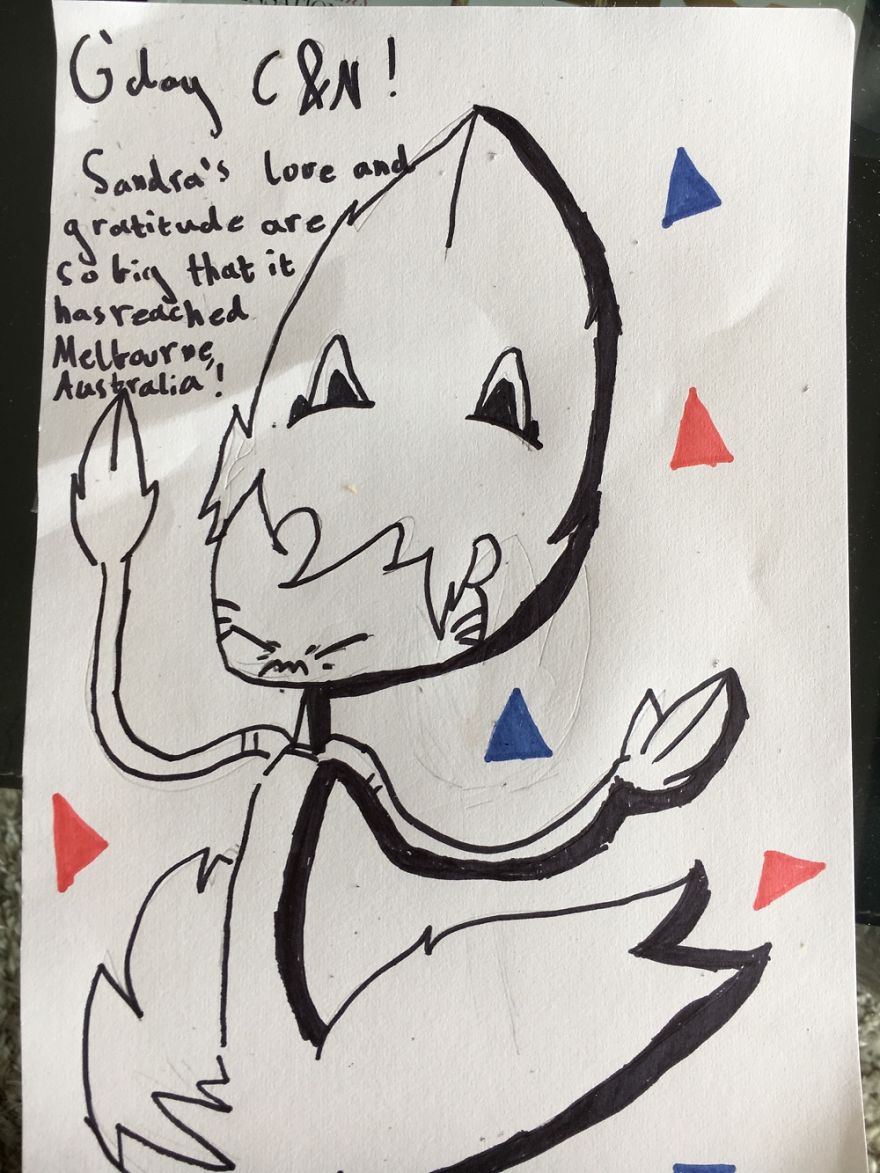 G'day C&N!
Sandra's love and
gratitude are
so big that it
has reached
Melbourne,
Australia!